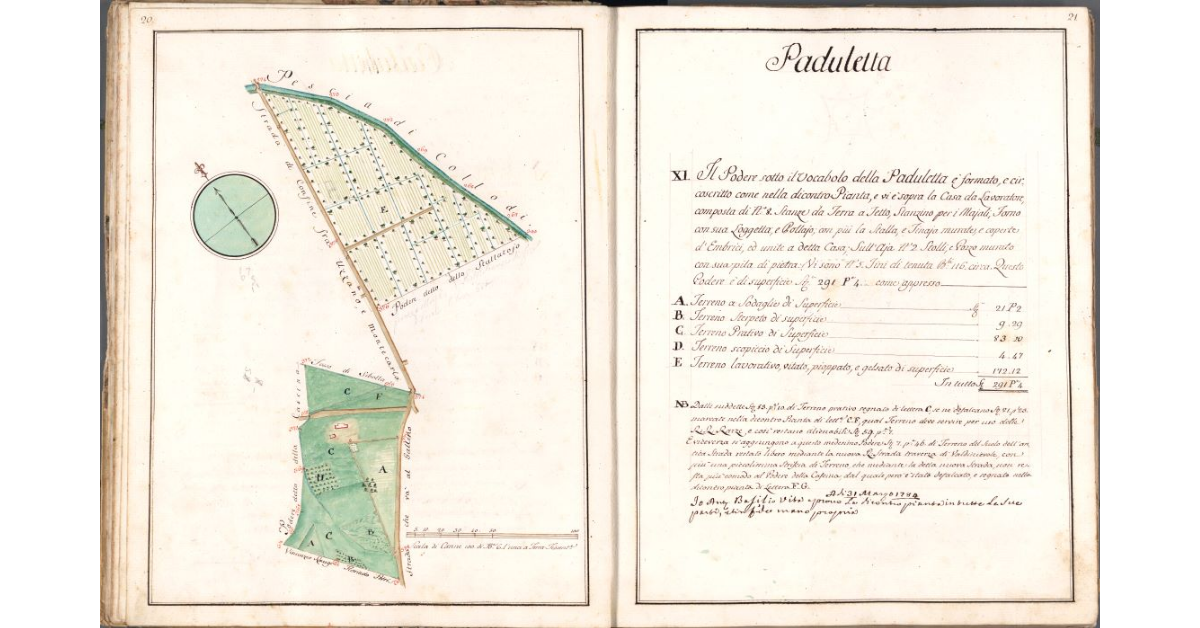 20
Pescia di Collodi
Strada di Confine fra Uzzano e Montecarlo
E
Podere detto della
C F
C
A
D
A C B
B
Strada che va al
Podere detto della
5 10 20 30 40 50 100
Scala di Canne 100 di Br. 6. l'una a Terra
21
Paduletta
XI. Il Podere sotto il Vocabolo della Paduletta è formato, e cir-
coscritto come nella dicontro Pianta, e vi è sopra la Casa da Lavoratore,
composta di N.° 8. Stanze da Terra a Tetto, Stanzino per i Majali, Forno
con sua Loggetta, e Pollajo, con più la Stalla, e Tinaja murate, e coperte
d'Embrici, ed unite a detta Casa; Sull'Aja N.° 2. Stolli, e Pozzo murato
con sua pila di pietra: Vi sono N.° 3. Tini di tenuta B.li 116. circa. Questo
Podere è di superficie 291 P. 4. come appresso
A. Terreno a Sodaglie di Superficie 21 P. 2
B. Terreno Sterpeto di superficie 9. 29
C. Terreno Prativo di Superficie 83. 20
D. Terreno scopiccio di Superficie 4. 47
E Terreno lavorativo, vitato, pioppato, e gelsato di superficie 172. 12
In tutto 291 P. 4
NB. Dalle suddette 83. p. 20. di Terreno prativo segnato di lettera C. se ne defalcano 21. p.
marcate nella dicontro Pianta di lett.ª C.F, qual Terreno deve servire per uso delle
R. R. Razze, e così restano alienabili 59. p. 7.
E viceversa si aggiungono a questo medesimo Podere 7. p. 46. di Terreno del Suolo dell'an-
tica Strada restato libero mediante la nuova R. Strada traversa di Valdinievole, con
più una piccolissima Striscia di Terreno, che mediante la detta nuova Strada, non re-
sta più comodo al Podere della Casina, dal quale però è stato defalcato, e segnato nella
dicontro pianta di Lettera F. G.
A di 31 Mayo 1784
Io Ant. Basilio Vita approvo la dicontro pianta in tutte le sue
parti, mano propria